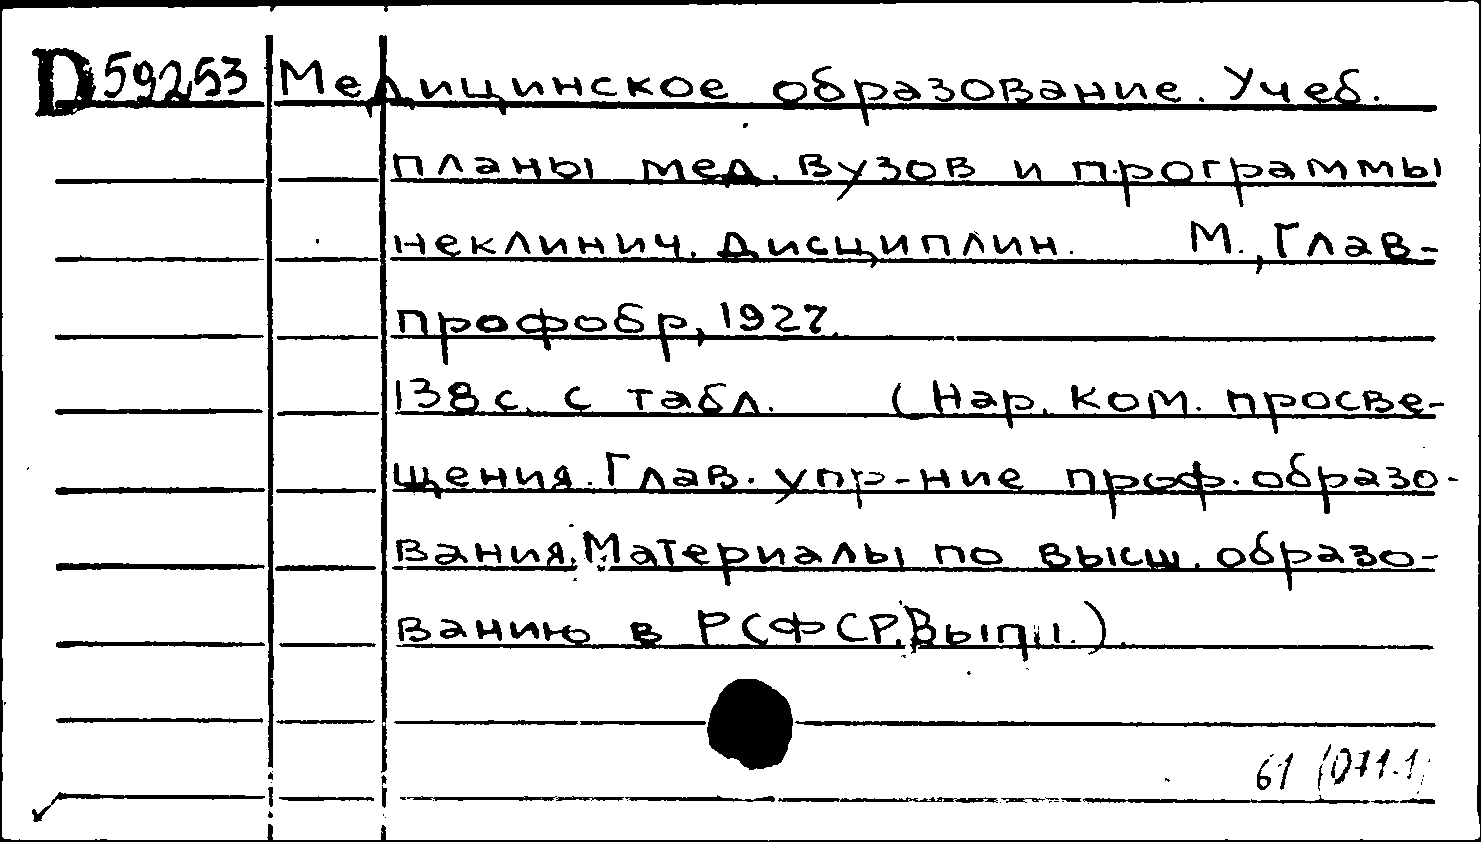 D 59253 Медицинское образование. Учеб.
планы мед. вузов и программы
неклинич. дисциплин. М., Глав-
профобр, 1927.
138 с. с табл. (Нар. ком. просве-
щения. Глав. упр-ние проф. образо-
вания. Материалы по высш. образо-
ванию в РСФСР. Вып II.).
61 (071.1)